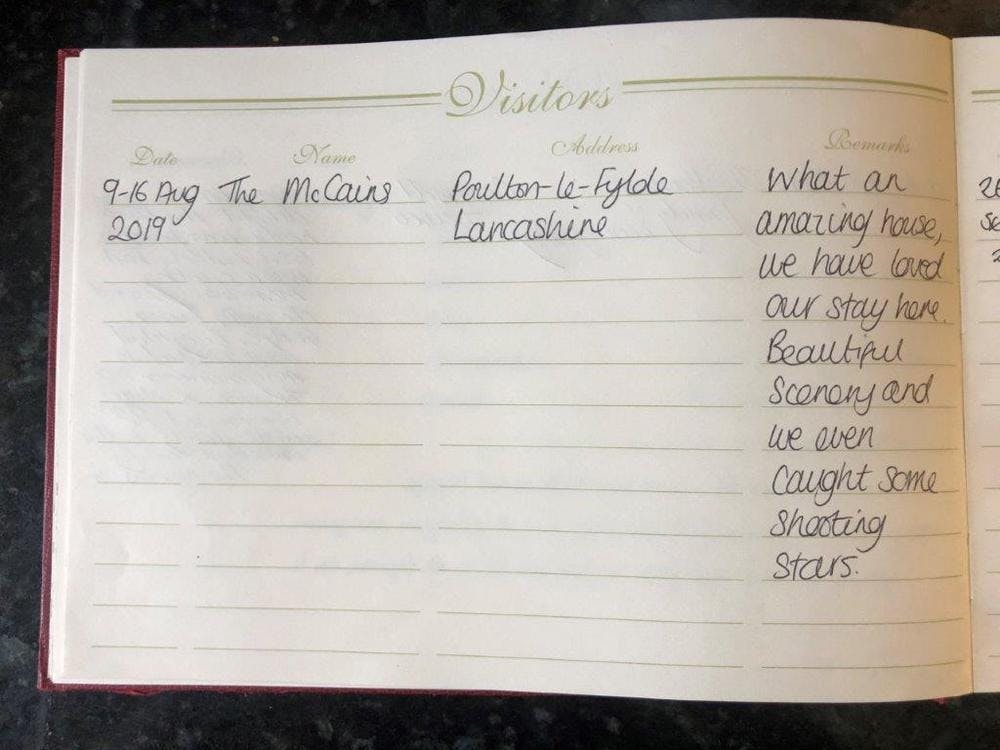 Visitors
Date Name Address Remarks
9-16 Aug The McCains Poulton-le-Fylde What an
2019 Lancashire amazing house,
we have loved
our stay here.
Beautiful
Scenery and
we even
caught some
shooting
stars.